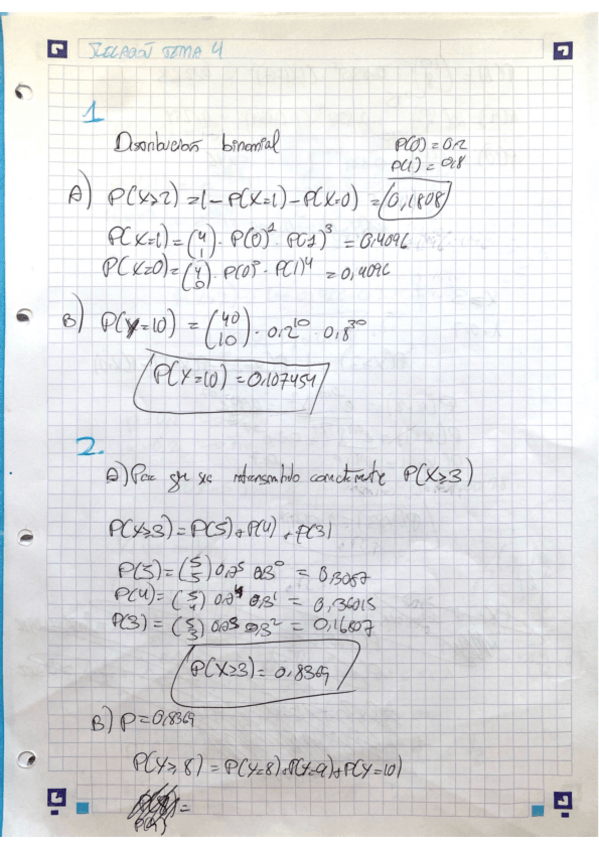 RELACIÓN TEMA 4
1
Distribución binomial
P(0) = 0,2
P(1) = 0,8
A) P(X≥2) = 1 - P(X=1) - P(X=0) = 0,1808
P(X=1) = (4 1) · P(0)¹ · P(1)³ = 0,4096
P(X=0) = (4 0) · P(0)⁰ · P(1)⁴ = 0,4096
B) P(Y=10) = (40 10) · 0,2¹⁰ · 0,8³⁰
P(Y=10) = 0,107454
2.
A) Para que sea retransmitido correctamente P(X≥3)
P(X≥3) = P(5) + P(4) + P(3)
P(5) = (5 5) 0,7⁵ 0,3⁰ =
P(4) = (5 4) 0,7⁴ 0,3¹ = 0,36015
P(3) = (5 3) 0,7³ 0,3² = 0,16807
P(X≥3) = 0,8369
B) P = 0,8369
P(Y≥8) = P(Y=8) + P(Y=9) + P(Y=10)